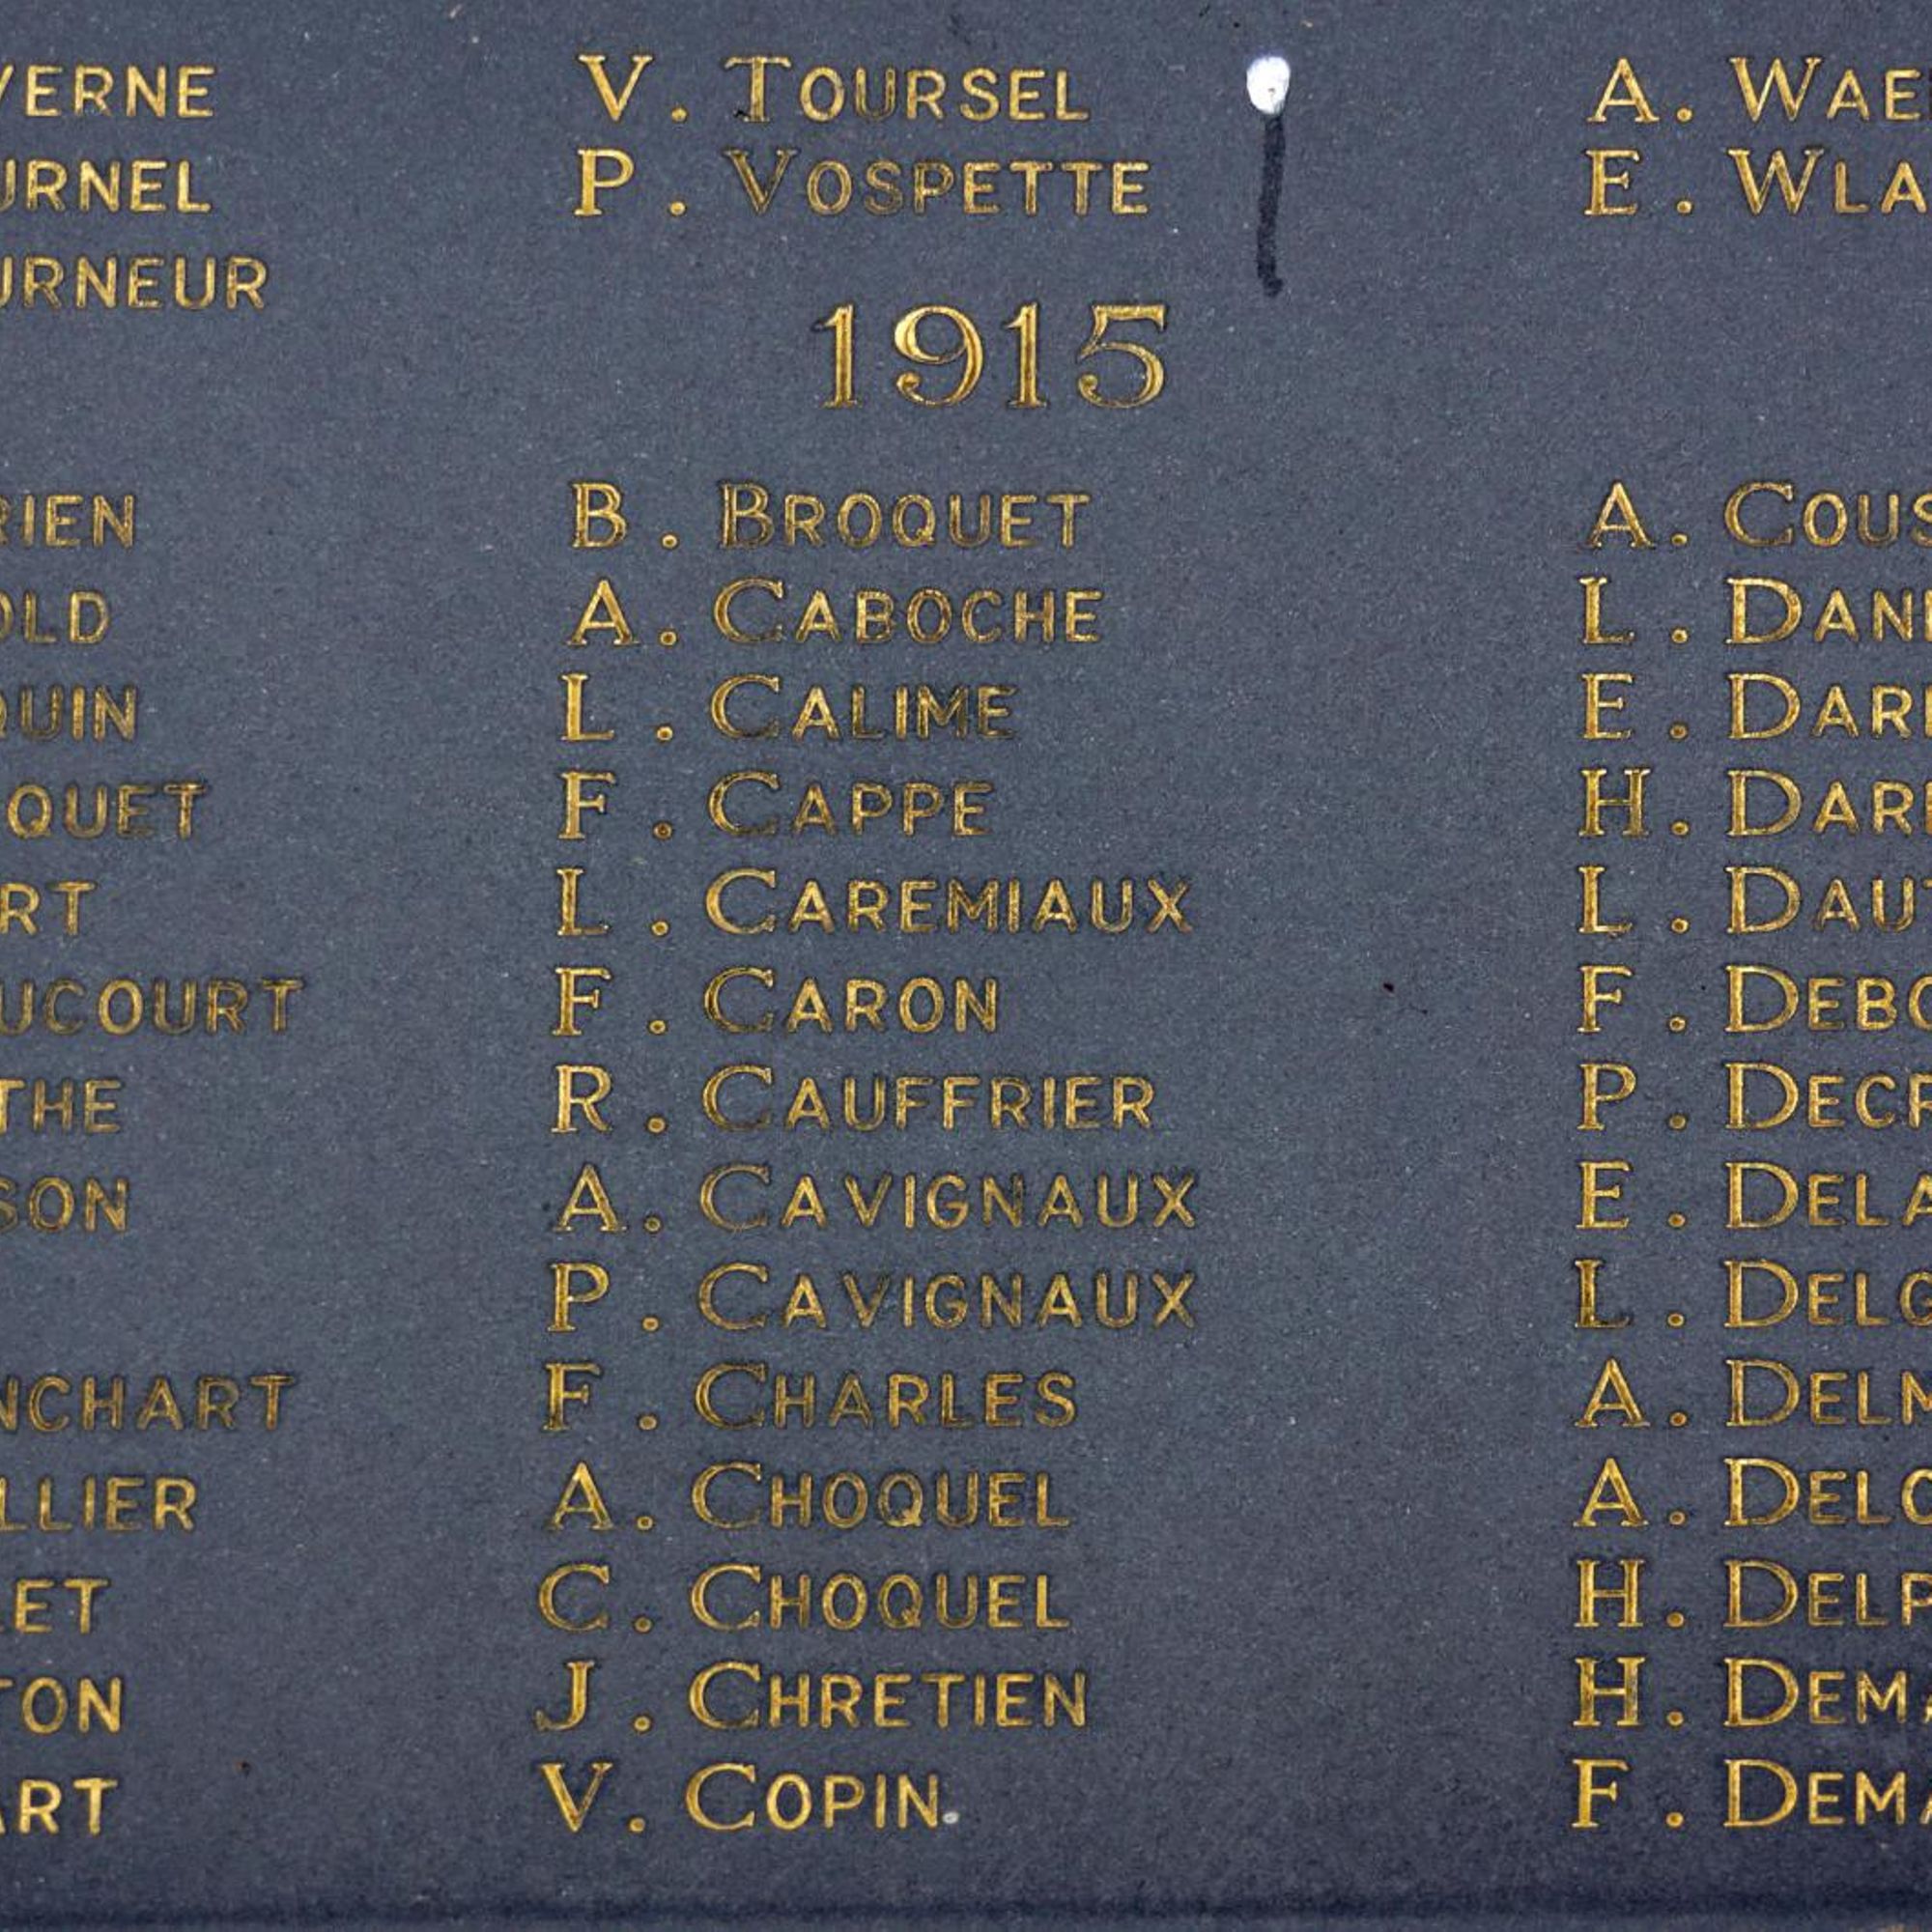 VERNE V. TOURSEL A. WAE
URNEL P. VOSPETTE E. WLA
URNEUR
1915
RIEN B. BROQUET A. COUS
OLD A. CABOCHE L. DAN
QUIN L. CALIME E. DAR
QUET F. CAPPE H. DAR
RT L. CAREMIAUX L. DAU
UCOURT F. CARON F. DEBO
THE R. CAUFFRIER P. DECR
SON A. CAVIGNAUX E. DELA
P. CAVIGNAUX L. DEL
NCHART F. CHARLES A. DEL
LLIER A. CHOQUEL A. DEL
LET C. CHOQUEL H. DELP
TON J. CHRETIEN H. DEM
ART V. COPIN F. DEMA